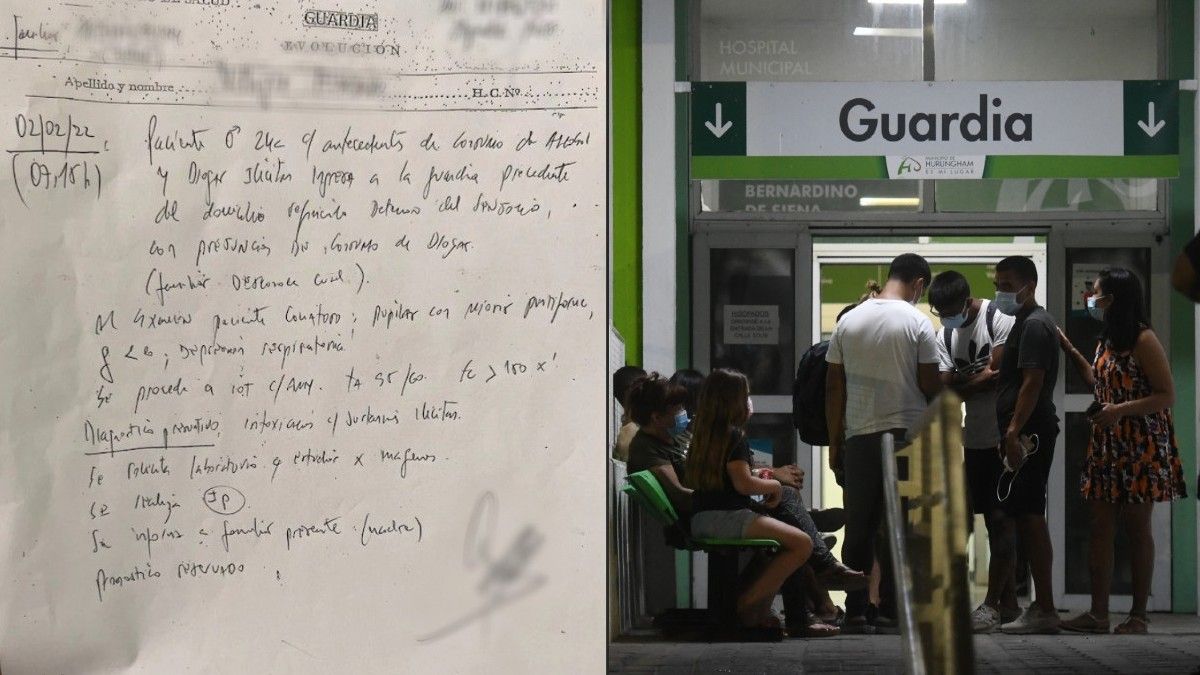 DE SALUD
GUARDIA
EVOLUCIÓN
Familiar
Apellido y nombre
H.C.Nº
02/02/22
(07,15h)
Paciente ♂ 24a c/ antecedentes de consumo de Alcohol
y Drogas Ilicitas Ingresa a la guardia procedente
del domicilio refiriendo Deterioro del Sensorio,
con presuncion de consumo de Drogas.
(familiar Desconoce cual).
Al Examen paciente Comatoso; pupilas con miosis puntiforme,
Depresión respiratoria
Se procede a iot c/ TA 95/60. FC > 100 x'
Diagnostico presuntivo: intoxicacion c/ sustancias ilicitas.
Se solicita laboratorio y estudios x imagenes.
Se realiza IP
Se informa a familiar presente (madre)
Pronostico reservado.
HOSPITAL
MUNICIPAL
Guardia
MUNICIPIO DE
HURLINGHAM
ES MI LUGAR
BERNARDINO
DE SIENA